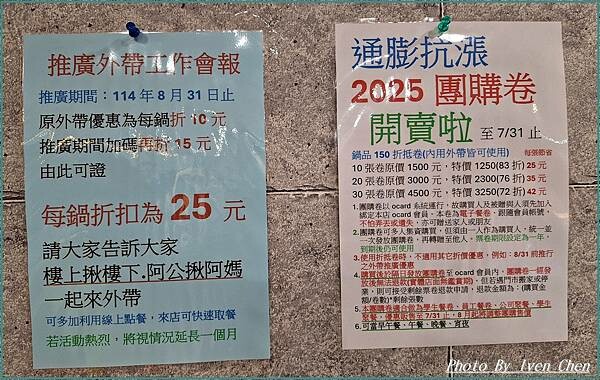 推廣外帶工作會報
推廣期間：114 年 8 月 31 日止
原外帶優惠為每鍋折 10 元
推廣期間加碼再折 15 元
由此可證
每鍋折扣為 25 元
請大家告訴大家
樓上揪樓下.阿公揪阿媽
一起來外帶
可多加利用線上點餐，來店可快速取餐
若活動熱烈，將視情況延長一個月
通膨抗漲
2025 團購卷
開賣啦 至 7/31 止
鍋品 150 折抵卷(內用外帶皆可使用) 每張節省
10 張卷原價 1500 元，特價 1250(83 折) 25 元
20 張卷原價 3000 元，特價 2300(76 折) 35 元
30 張卷原價 4500 元，特價 3250(72 折) 42 元
1.團購卷以 ocard 系統運行，故購買人及被贈與人須先加入
綁定本店 ocard 會員，本卷為電子餐卷，跟隨會員帳號，
不怕弄丟或遺失，亦可贈送家人或朋友
2.團購卷可多人集資購買，但須由一人作為購買人，統一並
一次發放團購卷，再轉贈至他人，票卷期限設定為一年，
到期後仍可使用
3.使用折抵卷時，不適用其它折價優惠，例如：8/31 前推行
之外帶推廣優惠
4.購買後於隔日發放團購卷至 ocard 會員內，團購卷一經發
放後無法退款(實體店面無鑑賞期)，但若遇門市搬家或停
業，則可接受剩餘票卷退款申請，退款金額為：(購買金
額/卷數)*剩餘張數
5.本團購卷適合做為學生餐卷、員工餐卷、公司聚餐、學生
聚餐，優惠販售至 7/31 止，8 月起將調整團購售價
6.可當早午餐、午餐、晚餐、宵夜
Photo By Iven Chen